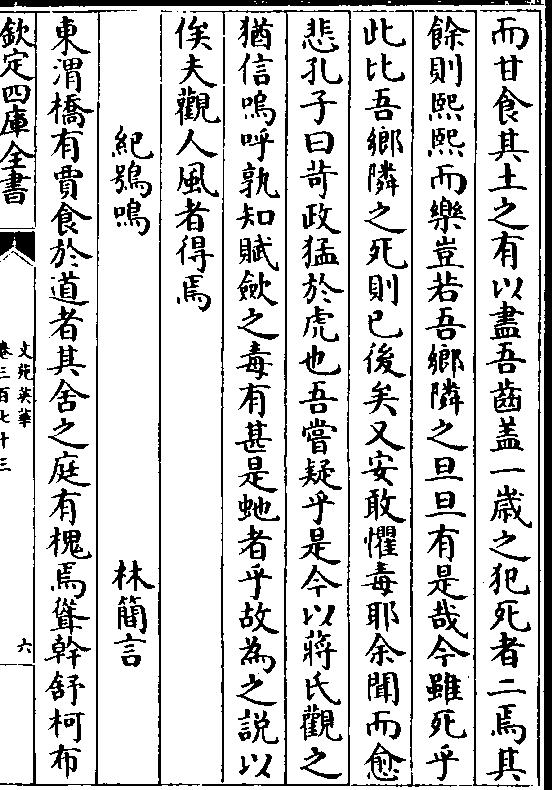 而甘食其土之有以盡吾齒盖一嵗之犯死者二焉其
餘則熙熙而樂豈若吾鄉隣之旦旦有是哉今雖死乎
此比吾鄉隣之死則已後矣又安敢懼毒耶余聞而愈
悲孔子曰苛政猛於虎也吾嘗疑乎是今以蔣氏觀之
猶信嗚呼孰知賦斂之毒有甚是虵者乎故為之説以
俟夫觀人風者得焉
紀鴞鳴 林簡言
東渭橋有賈食於道者其舍之庭有槐焉聳幹舒柯布
欽定四庫全書
文苑英華
卷三百七十三
六